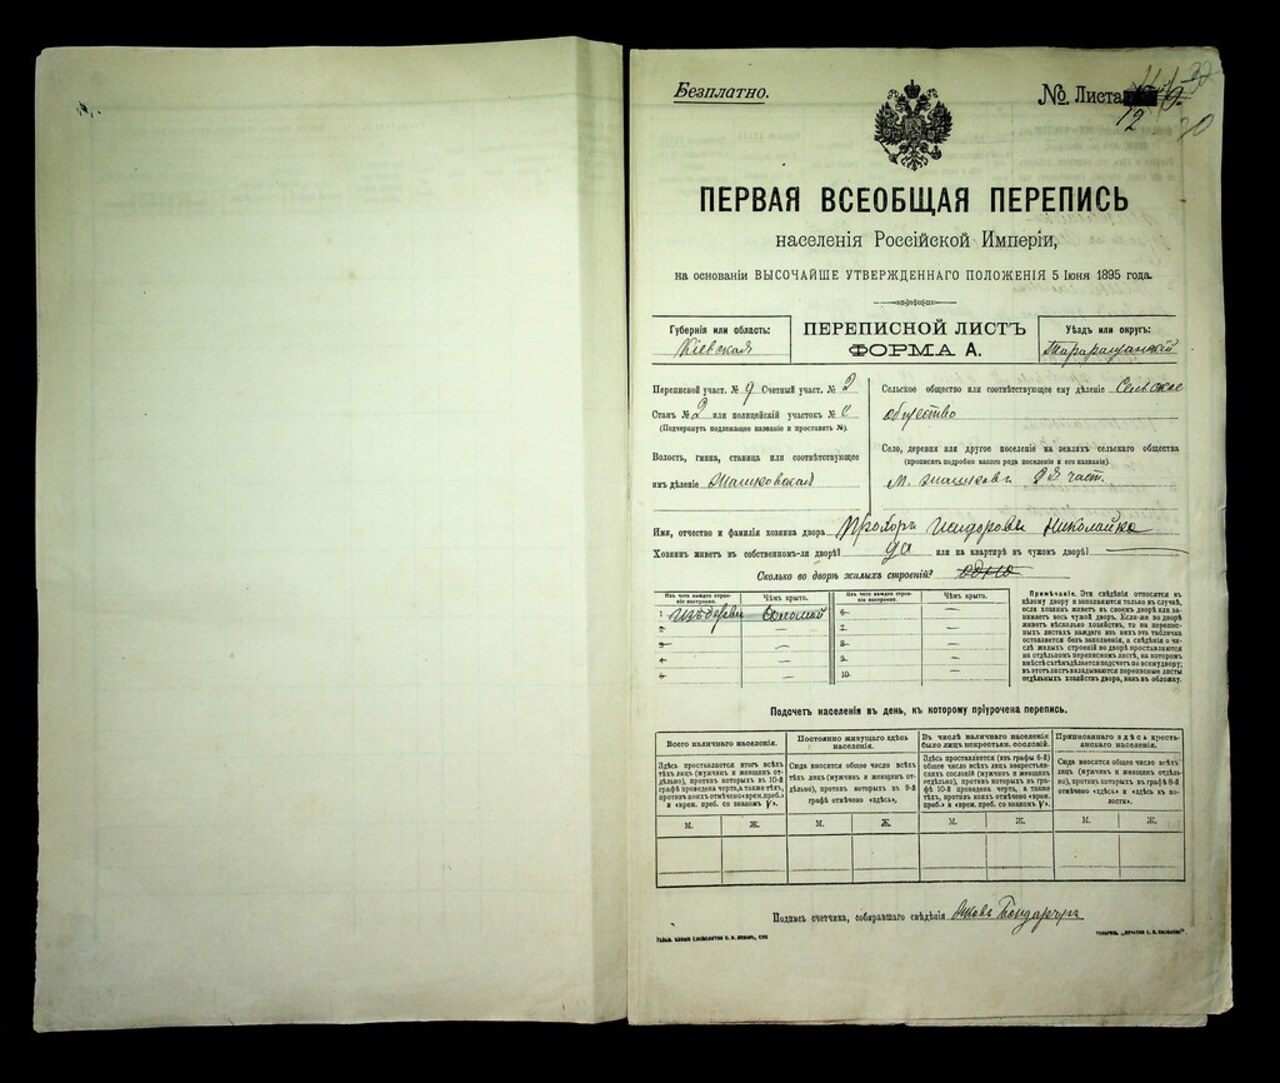 Безплатно.
№ Листа
12
20
ПЕРВАЯ ВСЕОБЩАЯ ПЕРЕПИСЬ
населенія Россійской Имперіи,
на основаніи ВЫСОЧАЙШЕ УТВЕРЖДЕННАГО ПОЛОЖЕНІЯ 5 Іюня 1895 года.
Губернія или область:
Кіевская
ПЕРЕПИСНОЙ ЛИСТЪ
ФОРМА А.
Уѣздъ или округъ:
Таращанскій
Переписной участ. № 9 Счетный участ. № 2
Станъ № 2 или полицейскій участокъ №
(Подчеркнуть подлежащее названіе и проставить №).
Волость, гмина, станица или соотвѣтствующее
имъ дѣленіе Жашковская
Сельское общество или соотвѣтствующее ему дѣленіе Сельское
общество
Село, деревня или другое поселеніе на земляхъ сельскаго общества
(прописать подробно какого рода поселеніе и его названіе).
М. Жашковъ 2я част.
Имя, отчество и фамилія хозяина двора Прохоръ Исидоровъ Николайко
Хозяинъ живетъ въ собственномъ-ли дворѣ? да или на квартирѣ въ чужомъ дворѣ?
Сколько во дворѣ жилыхъ строеній? одно
Изъ чего каждое строеніе построено.
Чѣмъ крыто.
Изъ чего каждое строеніе построено.
Чѣмъ крыто.
1 Изъ дерева Соломой
2
3
4
5
6
7
8
9
10
Примѣчаніе. Эти свѣдѣнія относятся къ
цѣлому двору и заполняются только въ случаѣ,
если хозяинъ живетъ въ своемъ дворѣ или занимаетъ
весь чужой дворъ. Если-же во дворѣ
живетъ нѣсколько хозяйствъ, то на переписныхъ
листахъ каждаго изъ нихъ эта табличка
оставляется безъ заполненія, а свѣдѣнія о числѣ
жилыхъ строеній во дворѣ проставляются
на отдѣльномъ переписномъ листѣ, на которомъ
вмѣстѣ съ тѣмъ дѣлается подсчетъ по всему двору;
въ этотъ листъ вкладываются переписные листы
отдѣльныхъ хозяйствъ двора, какъ въ обложку.
Подсчетъ населенія въ день, къ которому пріурочена перепись.
Всего наличнаго населенія.
Здѣсь проставляется итогъ всѣхъ
тѣхъ лицъ (мужчинъ и женщинъ отдѣльно),
противъ которыхъ въ 10-й
графѣ проведена черта, а также тѣхъ,
противъ коихъ отмѣчено «врем. преб.»
и «врем. преб. со знакомъ V».
Постоянно живущаго здѣсь
населенія.
Сюда вносится общее число всѣхъ
тѣхъ лицъ (мужчинъ и женщинъ отдѣльно),
противъ которыхъ въ 9-й
графѣ отмѣчено «здѣсь».
Въ числѣ наличнаго населенія
было лицъ некрестьян. сословій.
Здѣсь проставляется (изъ графы 6-й)
общее число всѣхъ лицъ некрестьянскихъ
сословій (мужчинъ и женщинъ
отдѣльно), противъ которыхъ въ графѣ
10-й проведена черта, а также
тѣхъ, противъ коихъ отмѣчено «врем.
преб.» и «врем. преб. со знакомъ V».
Приписаннаго здѣсь крестьянскаго
населенія.
Сюда вносится общее число всѣхъ
лицъ (мужчинъ и женщинъ отдѣльно),
противъ которыхъ въ графѣ 8-й
отмѣчено «здѣсь» и «здѣсь къ волости».
М. Ж. М. Ж. М. Ж. М. Ж.
Подпись счетчика, собиравшаго свѣдѣнія Яковъ Бондарчукъ